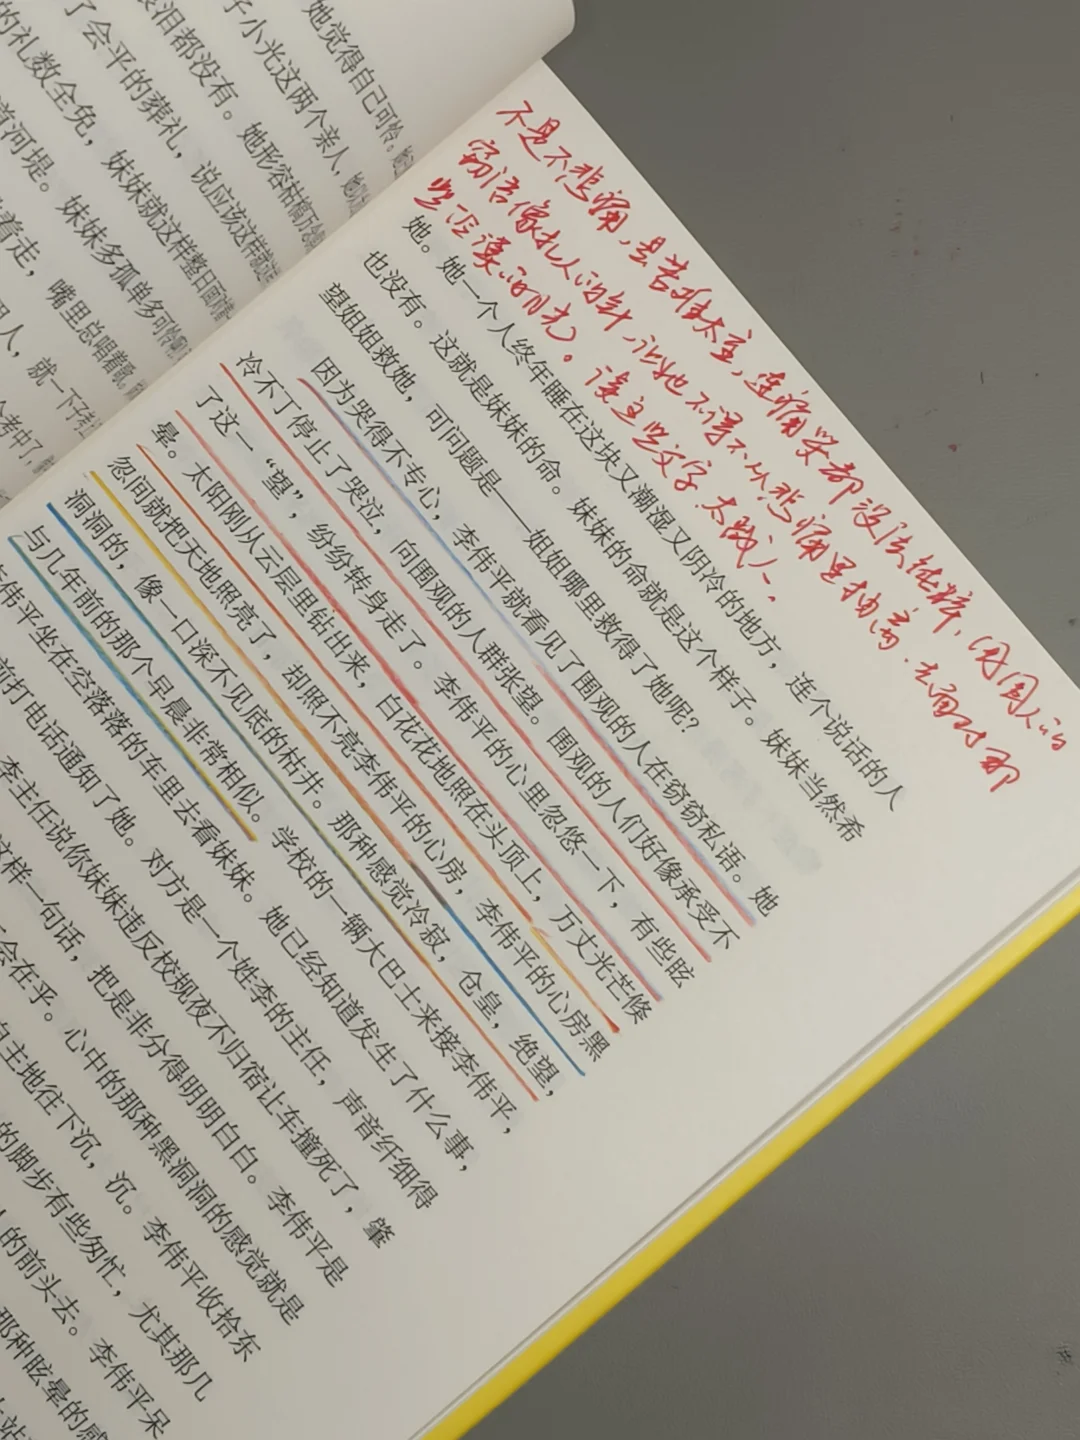 她觉得自己可怜,
子小光这两个亲人,
眼泪都没有。她形容枯槁
了会平的葬礼,说应该这样就
的礼数全免,妹妹就这样整日
河堤。妹妹多孤单多可怜
着走,嘴里总唱着歌,
人,就一下子
考中了,
不是不悲痛,是苦难太重,连痛哭都没法纯粹,围人的
窃语像扎人的针,让她不得不从悲痛里抽离,去面对那
些冷漠的目光。读这些文字太戳人。
她。她一个人终年睡在这块又潮湿又阴冷的地方,连个说话的人
也没有。这就是妹妹的命。妹妹的命就是这个样子。妹妹当然希
望姐姐救她,可问题是——姐姐哪里救得了她呢?
因为哭得不专心,李伟平就看见了围观的人在窃窃私语。她
冷不丁停止了哭泣,向围观的人群张望。围观的人们好像承受不
了这一“望”,纷纷转身走了。李伟平的心里忽悠一下,有些眩
晕。太阳刚从云层里钻出来,白花花地照在头顶上,万丈光芒倏
忽间就把天地照亮了,却照不亮李伟平的心房,李伟平的心房黑
洞洞的,像一口深不见底的枯井。那种感觉冷寂,仓皇,绝望,
与几年前的那个早晨非常相似。学校的一辆大巴士来接李伟平,
李伟平坐在空落落的车里去看妹妹。她已经知道发生了什么事,
前打电话通知了她。对方是一个姓李的主任,声音纤细得
李主任说你妹妹违反校规夜不归宿让车撞死了,肇
这样一句话,把是非分得明明白白。李伟平是
会在乎。心中的那种黑洞洞的感觉就是
自主地往下沉,沉。李伟平收拾东
的脚步有些匆忙,尤其那几
人的前头去。李伟平呆
那种眩晕的感